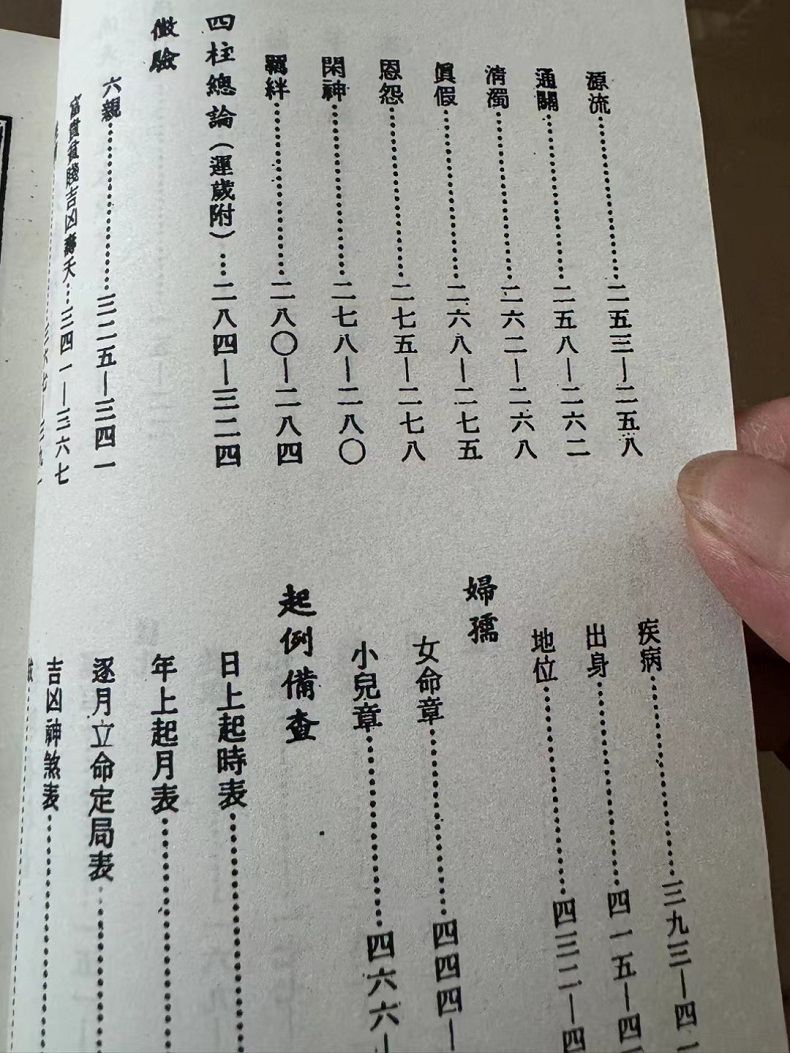 源流……二五三—二五八
通關……二五八—二六二
清濁……二六二—二六八
眞假……二六八—二七五
恩怨……二七五—二七八
閑神……二七八—二八〇
羈絆……二八〇—二八四
四柱總論(運歲附)……二八四—三二四
徵驗
六親……三二五—三四一
富貴貧賤吉凶壽夭……三四一—三六七
疾病……三九三—四一
出身……四一五—四
地位……四三二—四
婦孺
女命章……四四四—
小兒章……四六六—
起例備查
日上起時表……
年上起月表……
逐月立命定局表……
吉凶神煞表……